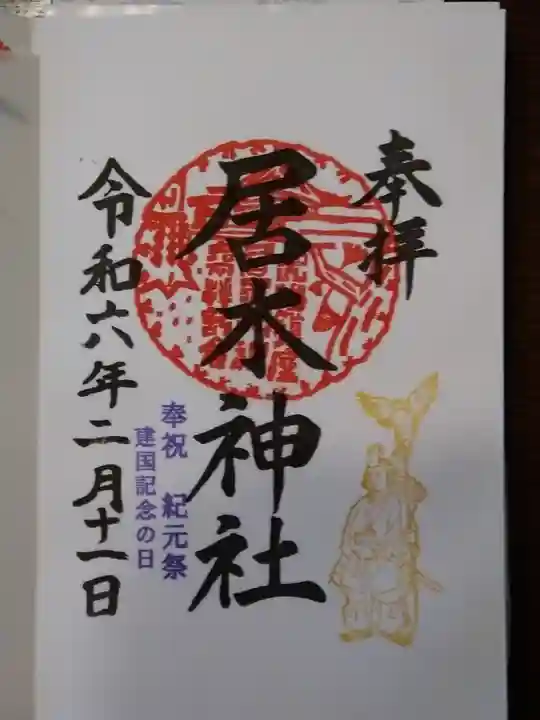 奉拝
居木神社
奉祝 紀元祭
建国記念の日
令和六年二月十一日